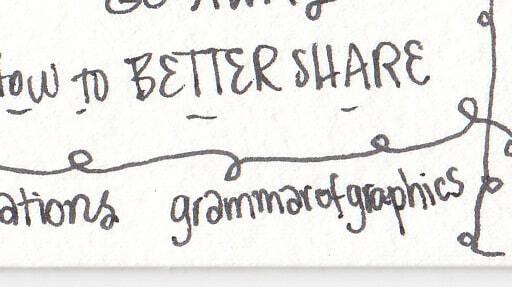 HOW to BETTER SHARE
ations grammarofgraphics